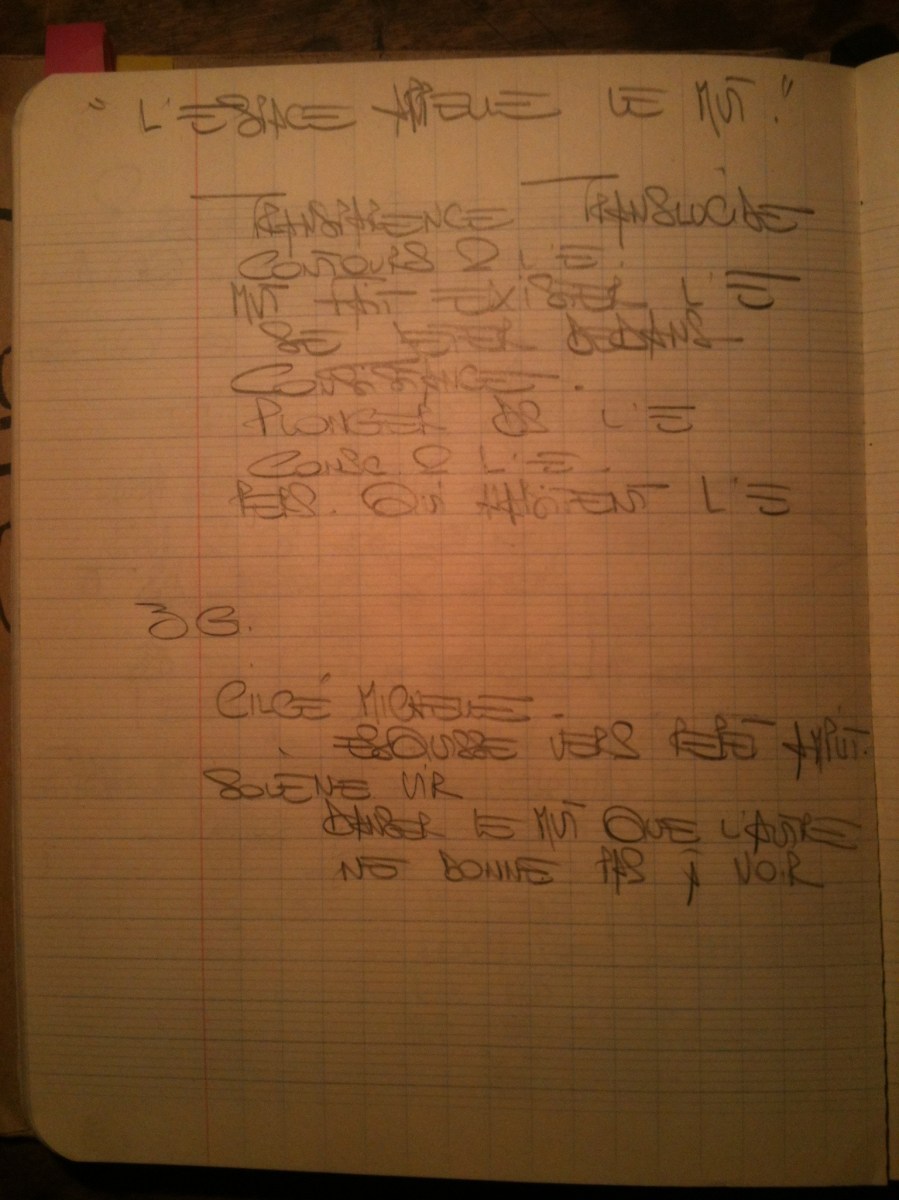 "L'ESPACE APPELLE LE MVT."
TRANSPARENCE TRANSLUCIDE
CONTOURS D L'E.
MVT FAIT EXISTER L'E
SE JETER DEDANS
CONSISTANCE.
PLONGER DS L'E
CONSC D L'E.
PERS. QUI HABITENT L'E
3G.
MICHELLE.
ESQUISSE VERS REPET
SOLÈNE
DANSER LE MVT QUE L'AUTRE
NE DONNE PAS À VOIR